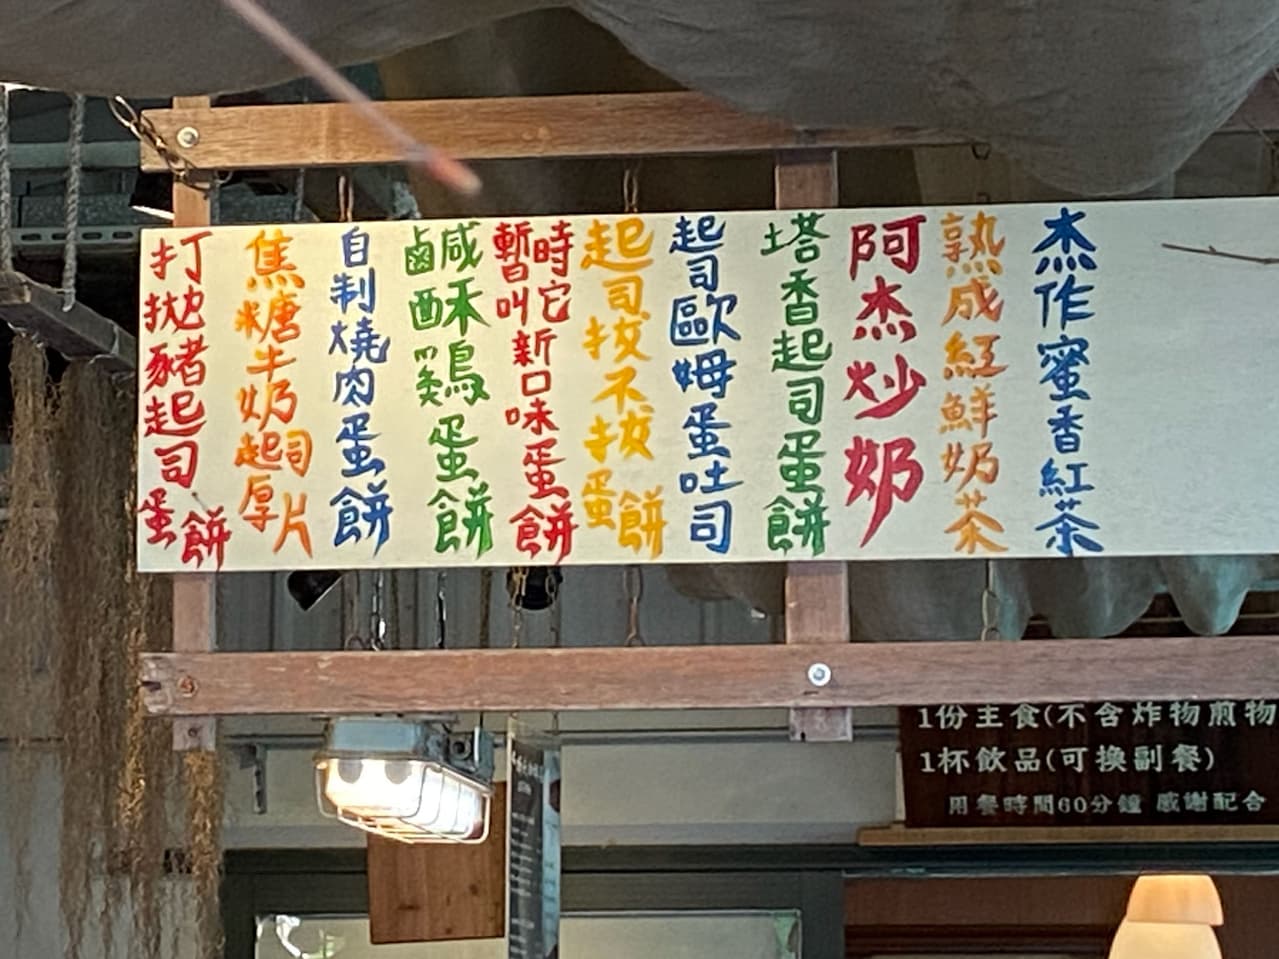 杰作蜜香紅茶
熟成紅鮮奶茶
阿杰炒奶
塔香起司蛋餅
起司歐姆蛋吐司
起司按不拔蛋餅
時它暫叫新口味蛋餅
鹹酥鷄鹵蛋餅
自制燒肉蛋餅
焦糖牛奶起司厚片
打拋豬起司蛋餅
1份主食(不含炸物煎物
1杯飲品(可換副餐)
用餐時間60分鐘 感謝配合